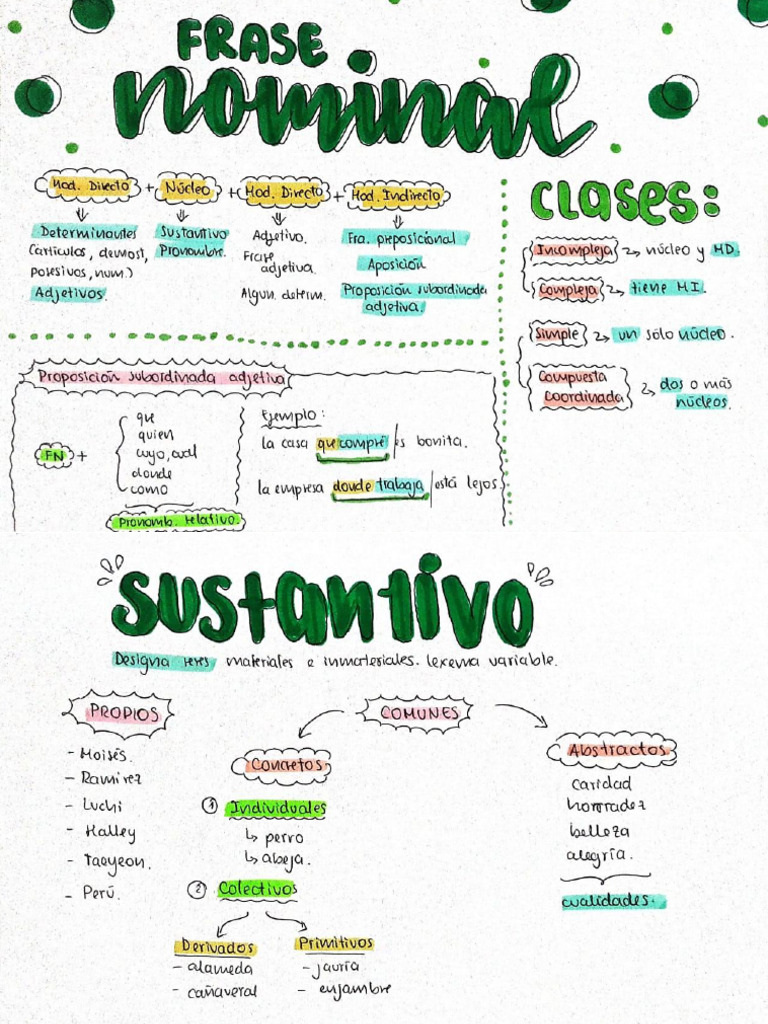 FRASE
nominal
Mod. Directo + Núcleo + Mod. Directo + Mod. Indirecto
Determinantes
(artículos, demost,
posesivos, num.)
Adjetivos.
Sustantivo
Pronombre.
Adjetivo.
Frase
adjetiva.
Algun. determ.
Fra. preposicional
Aposición
Proposición subordinada
adjetiva.
CLASES:
Incompleja → núcleo y MD.
Compleja → tiene MI.
Simple → un sólo núcleo.
Compuesta
coordinada → dos o más
núcleos.
Proposición subordinada adjetiva
FN +
que
quien
cuyo, cual
donde
como
Pronomb. relativo.
Ejemplo:
la casa que compré/es bonita.
la empresa donde trabaja/está lejos.
sustantivo
Designa seres materiales e inmateriales. lexema variable.
PROPIOS
- Moisés.
- Ramirez
- Luchi
- Halley
- Taeyeon.
- Perú.
COMUNES
Concretos
① Individuales
↳ perro
↳ abeja.
② Colectivos
Derivados
- alameda
- cañaveral
Primitivos
- jauría
- enjambre
Abstractos
caridad
honradez
belleza
alegría.
cualidades.